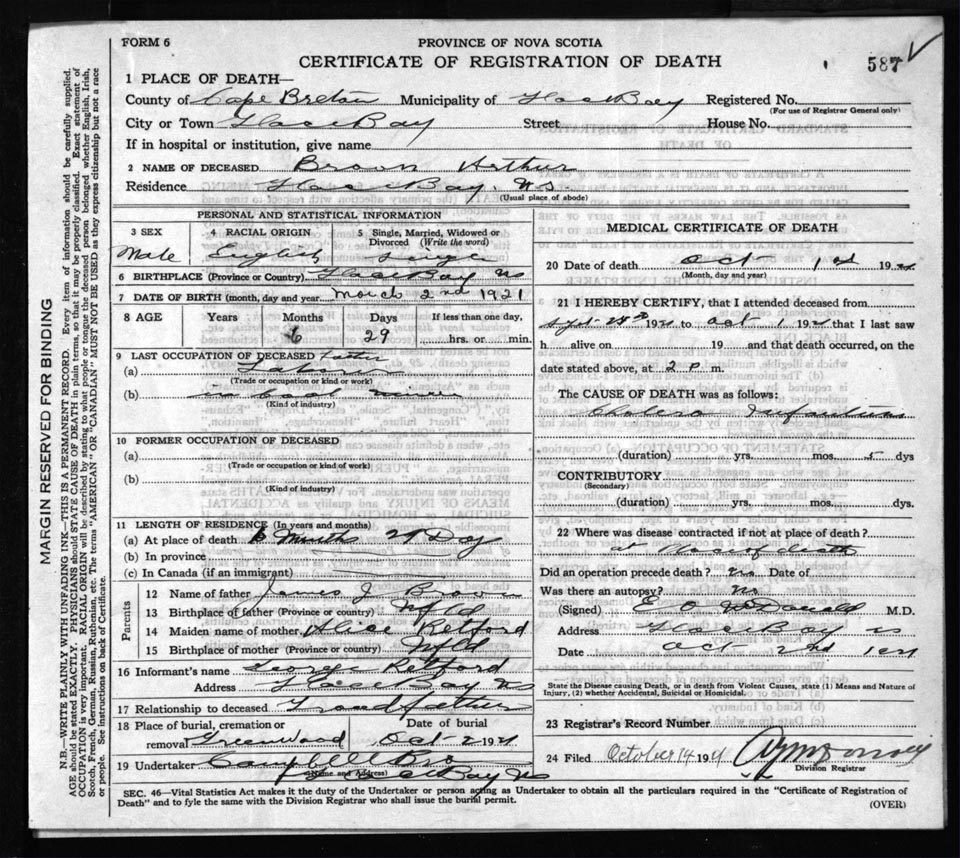 FORM 6
PROVINCE OF NOVA SCOTIA
CERTIFICATE OF REGISTRATION OF DEATH
587
1 PLACE OF DEATH—
County of Cape Breton Municipality of Glace Bay Registered No.
(For use of Registrar General only)
City or Town Glace Bay Street House No.
If in hospital or institution, give name
2 NAME OF DECEASED Brown Arthur
Residence Glace Bay. N.S.
(Usual place of abode)
PERSONAL AND STATISTICAL INFORMATION
3 SEX 4 RACIAL ORIGIN 5 Single, Married, Widowed or Divorced (Write the word)
Male English Single
6 BIRTHPLACE (Province or Country) Glace Bay NS
7 DATE OF BIRTH (month, day and year March 2nd 1921
8 AGE Years Months Days If less than one day,
6 29 hrs. or min.
9 LAST OCCUPATION OF DECEASED father
(a) Laborer
(Trade or occupation or kind or work)
(b) in Coal mines
(Kind of industry)
10 FORMER OCCUPATION OF DECEASED
(a)
(Trade or occupation or kind of work)
(b)
(Kind of industry)
11 LENGTH OF RESIDENCE (In years and months)
(a) At place of death 6 Months 29 Days
(b) In province
(c) In Canada (if an immigrant)
Parents
12 Name of father James J Brown
13 Birthplace of father (Province or country) Nfld
14 Maiden name of mother Alice Retford
15 Birthplace of mother (Province or country) Nfld
16 Informant's name George Retford
Address Glace Bay NS
17 Relationship to deceased Grandfather
18 Place of burial, cremation or removal Greenwood Date of burial Oct 2 1921
19 Undertaker Campbell Bro
(Name and Address) Glace Bay NS
MEDICAL CERTIFICATE OF DEATH
20 Date of death Oct 1st 19
(Month, day and year)
21 I HEREBY CERTIFY, that I attended deceased from
Sept 25th 1921 to Oct 1 1921 that I last saw
h alive on 19 and that death occurred, on the
date stated above, at 2 P. m.
The CAUSE OF DEATH was as follows:
Cholera Infantum
(duration) yrs. mos. 5 dys
CONTRIBUTORY
(Secondary)
(duration) yrs. mos. dys.
22 Where was disease contracted if not at place of death?
at Place of death
Did an operation precede death? No Date of
Was there an autopsy? No
(Signed) E O McDonald M.D.
Address Glace Bay NS
Date Oct 2nd 1921
State the Disease causing Death, or in death from Violent Causes, state (1) Means and Nature of
Injury, (2) whether Accidental, Suicidal or Homicidal.
23 Registrar's Record Number
24 Filed October 14 1921
Division Registrar
SEC. 46—Vital Statistics Act makes it the duty of the Undertaker or person acting as Undertaker to obtain all the particulars required in the "Certificate of Registration of
Death" and to fyle the same with the Division Registrar who shall issue the burial permit.
(OVER)
MARGIN RESERVED FOR BINDING
N.B.—WRITE PLAINLY WITH UNFADING INK—THIS IS A PERMANENT RECORD. Every item of information should be carefully supplied.
AGE should be stated EXACTLY. PHYSICIANS should STATE CAUSE OF DEATH in plain terms, so that it may be properly classified. Exact statement of
OCCUPATION is very important. RACIAL ORIGIN will be described by stating to what people or tongue the deceased person belonged whether English, Irish,
Scotch, French, German, Russian, Ruthenian, etc. The terms "AMERICAN" OR "CANADIAN" MUST NOT BE USED as they express citizenship but not a race
or people. See instructions on back of Certificate.